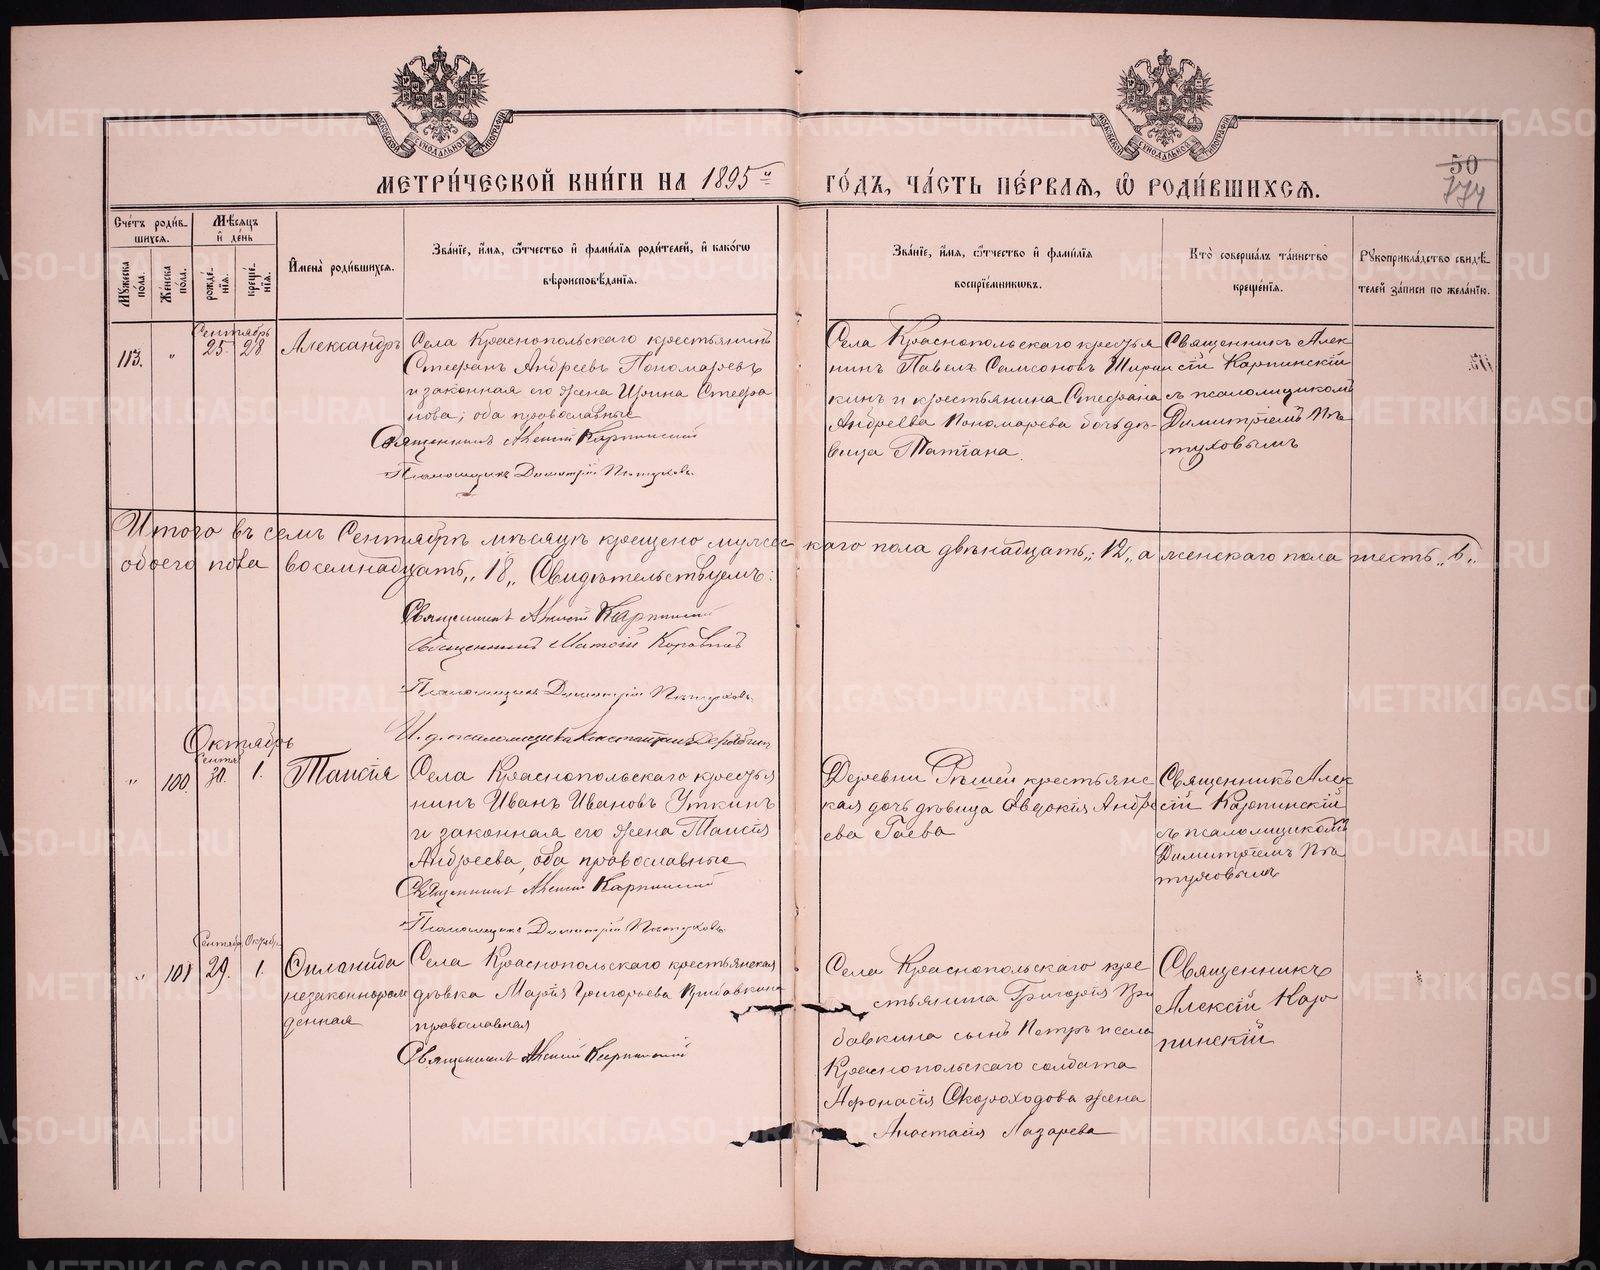 МЕТРИ́ЧЕСКОЙ КНИ́ГИ НА 1895 й ГО́ДЪ, ЧА́СТЬ ПЕ́РВАЯ, Ѡ РОДИ́ВШИХСЯ.
50
774
Сче́тъ роди́в-
шихся.
Мужеска по́ла.
Же́нска по́ла.
Мѣ́сяцъ
и де́нь
рожде́-
нія.
креще́-
нія.
Имена̀ роди́вшихся.
Зва́ніе, и́мя, ѻ́тчество и фами́лія роди́телей, и како́гѡ
вѣроисповѣ́данія.
Зва́ніе, и́мя, ѻ́тчество и фами́лія
воспріе́мниковъ.
Кто̀ соверша́лъ та́инство
креще́нія.
Рукоприкла́дство свидѣ́-
телей за́писи по жела́нію.
113.
"
Сентябрь
25. 28
Александръ
Села Краснопольскаго крестьянинъ
Стефанъ Андреевъ Пономаревъ
и законная его жена Ирина Стефа
нова; оба православные
Священникъ Алексій Карпинскій
Псаломщикъ Димитрій Пѣтуховъ.
Села Краснопольскаго кресья
нинъ Павелъ Самсоновъ Шири
кинъ и крестьянина Стефана
Андреева Пономарева дочь дѣ-
вица Татіана.
Священникъ Алек
сій Карпинскій
съ псаломщикомъ
Димитріемъ Пѣ
туховымъ
Итого въ семъ Сентябрѣ мѣсяцѣ крещено мужес каго пола двѣнадцать „12„ а женскаго пола шесть „6„
обоего пола восемнадцать „18„ Свидѣтельствуемъ:
Священникъ Алексій Карпинскій
Священникъ
Псаломщикъ Димитрій Пѣтуховъ.
И. д. псаломщика Константинъ Дерябинъ
Октябрь
"
100.
Сентяб
30. 1.
Таисія
Села Краснопольскаго кресья
нинъ Иванъ Ивановъ Уткинъ
и законная его жена Таисія
Андреева, оба православные
Священникъ Алексій Карпинскій
Псаломщикъ Димитрій Пѣтуховъ
Деревни Рѣшей крестьянс
кая дочь дѣвица Овдокія Андре
ева Гаева
Священникъ Алек
сій Карпинскій
съ псаломщикомъ
Димитріемъ Пѣ
туховымъ
"
101
Сентябр. Октябр.
29. 1.
незаконнорож
денная
Села Краснопольскаго крестьянская
дѣвка Марія Григорьева Прибавкина
православная
Священникъ Алексій Карпинскій
Села Краснопольскаго кре
стьянина Григорія При
бавкина сынъ Петръ и села
Краснопольскаго солдата
Афонасія Скороходова жена
Анастасія Лазарева
Священникъ
Алексій Кар
пинскій
МОСКОВСКОЙ СѴНОДАЛЬНОЙ ТИПОГРАФІИ
МОСКОВСКОЙ СѴНОДАЛЬНОЙ ТИПОГРАФІИ
METRIKI.GASO-URAL.RU